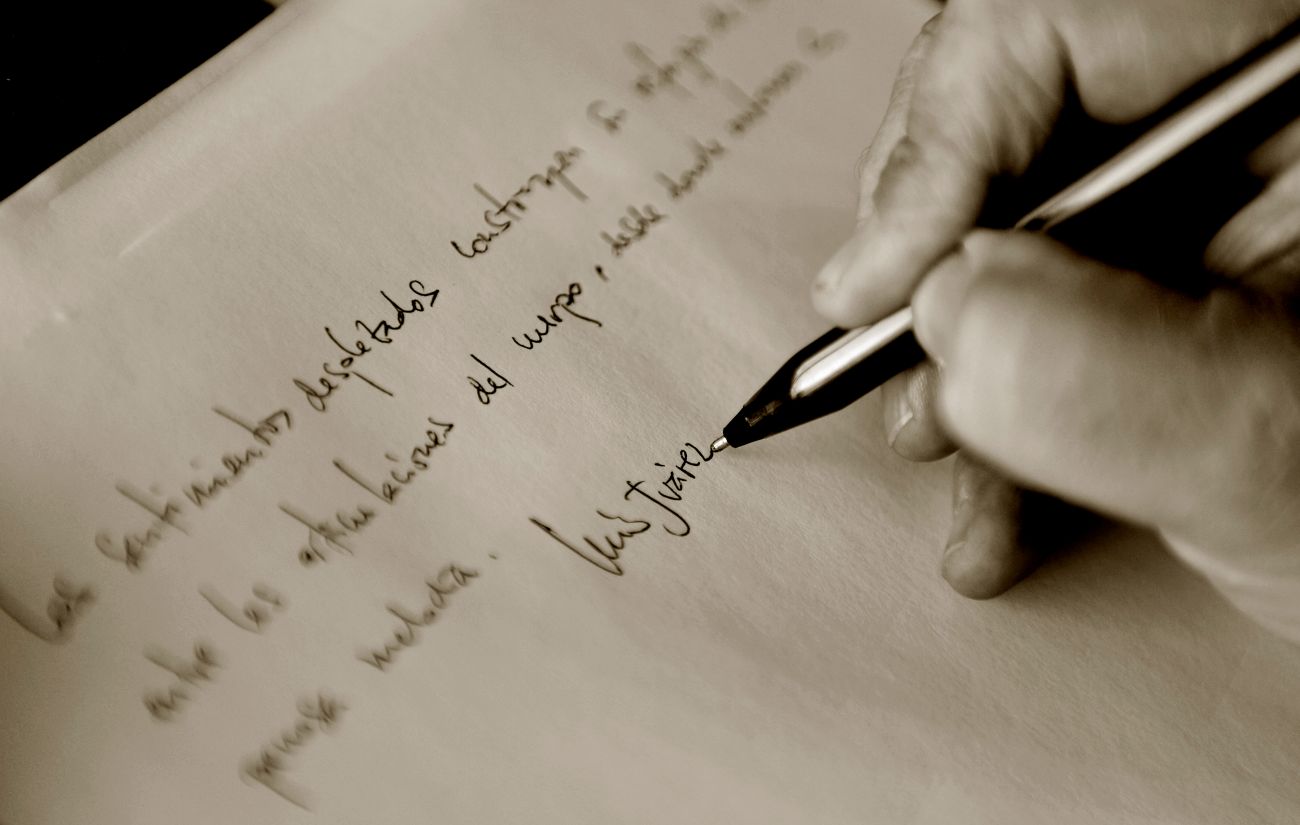 Los sentimientos despletados construyen su refugio
entre las articulaciones del cuerpo, desde donde
penosa melodía.
Luis Juárez